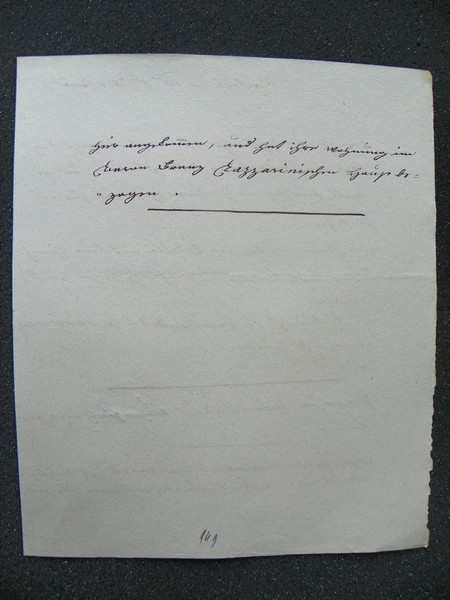 hier angekommen, und hat ihre Wohnung im
Baron Franz Lazzarinischen Hause be=
"zogen .
949